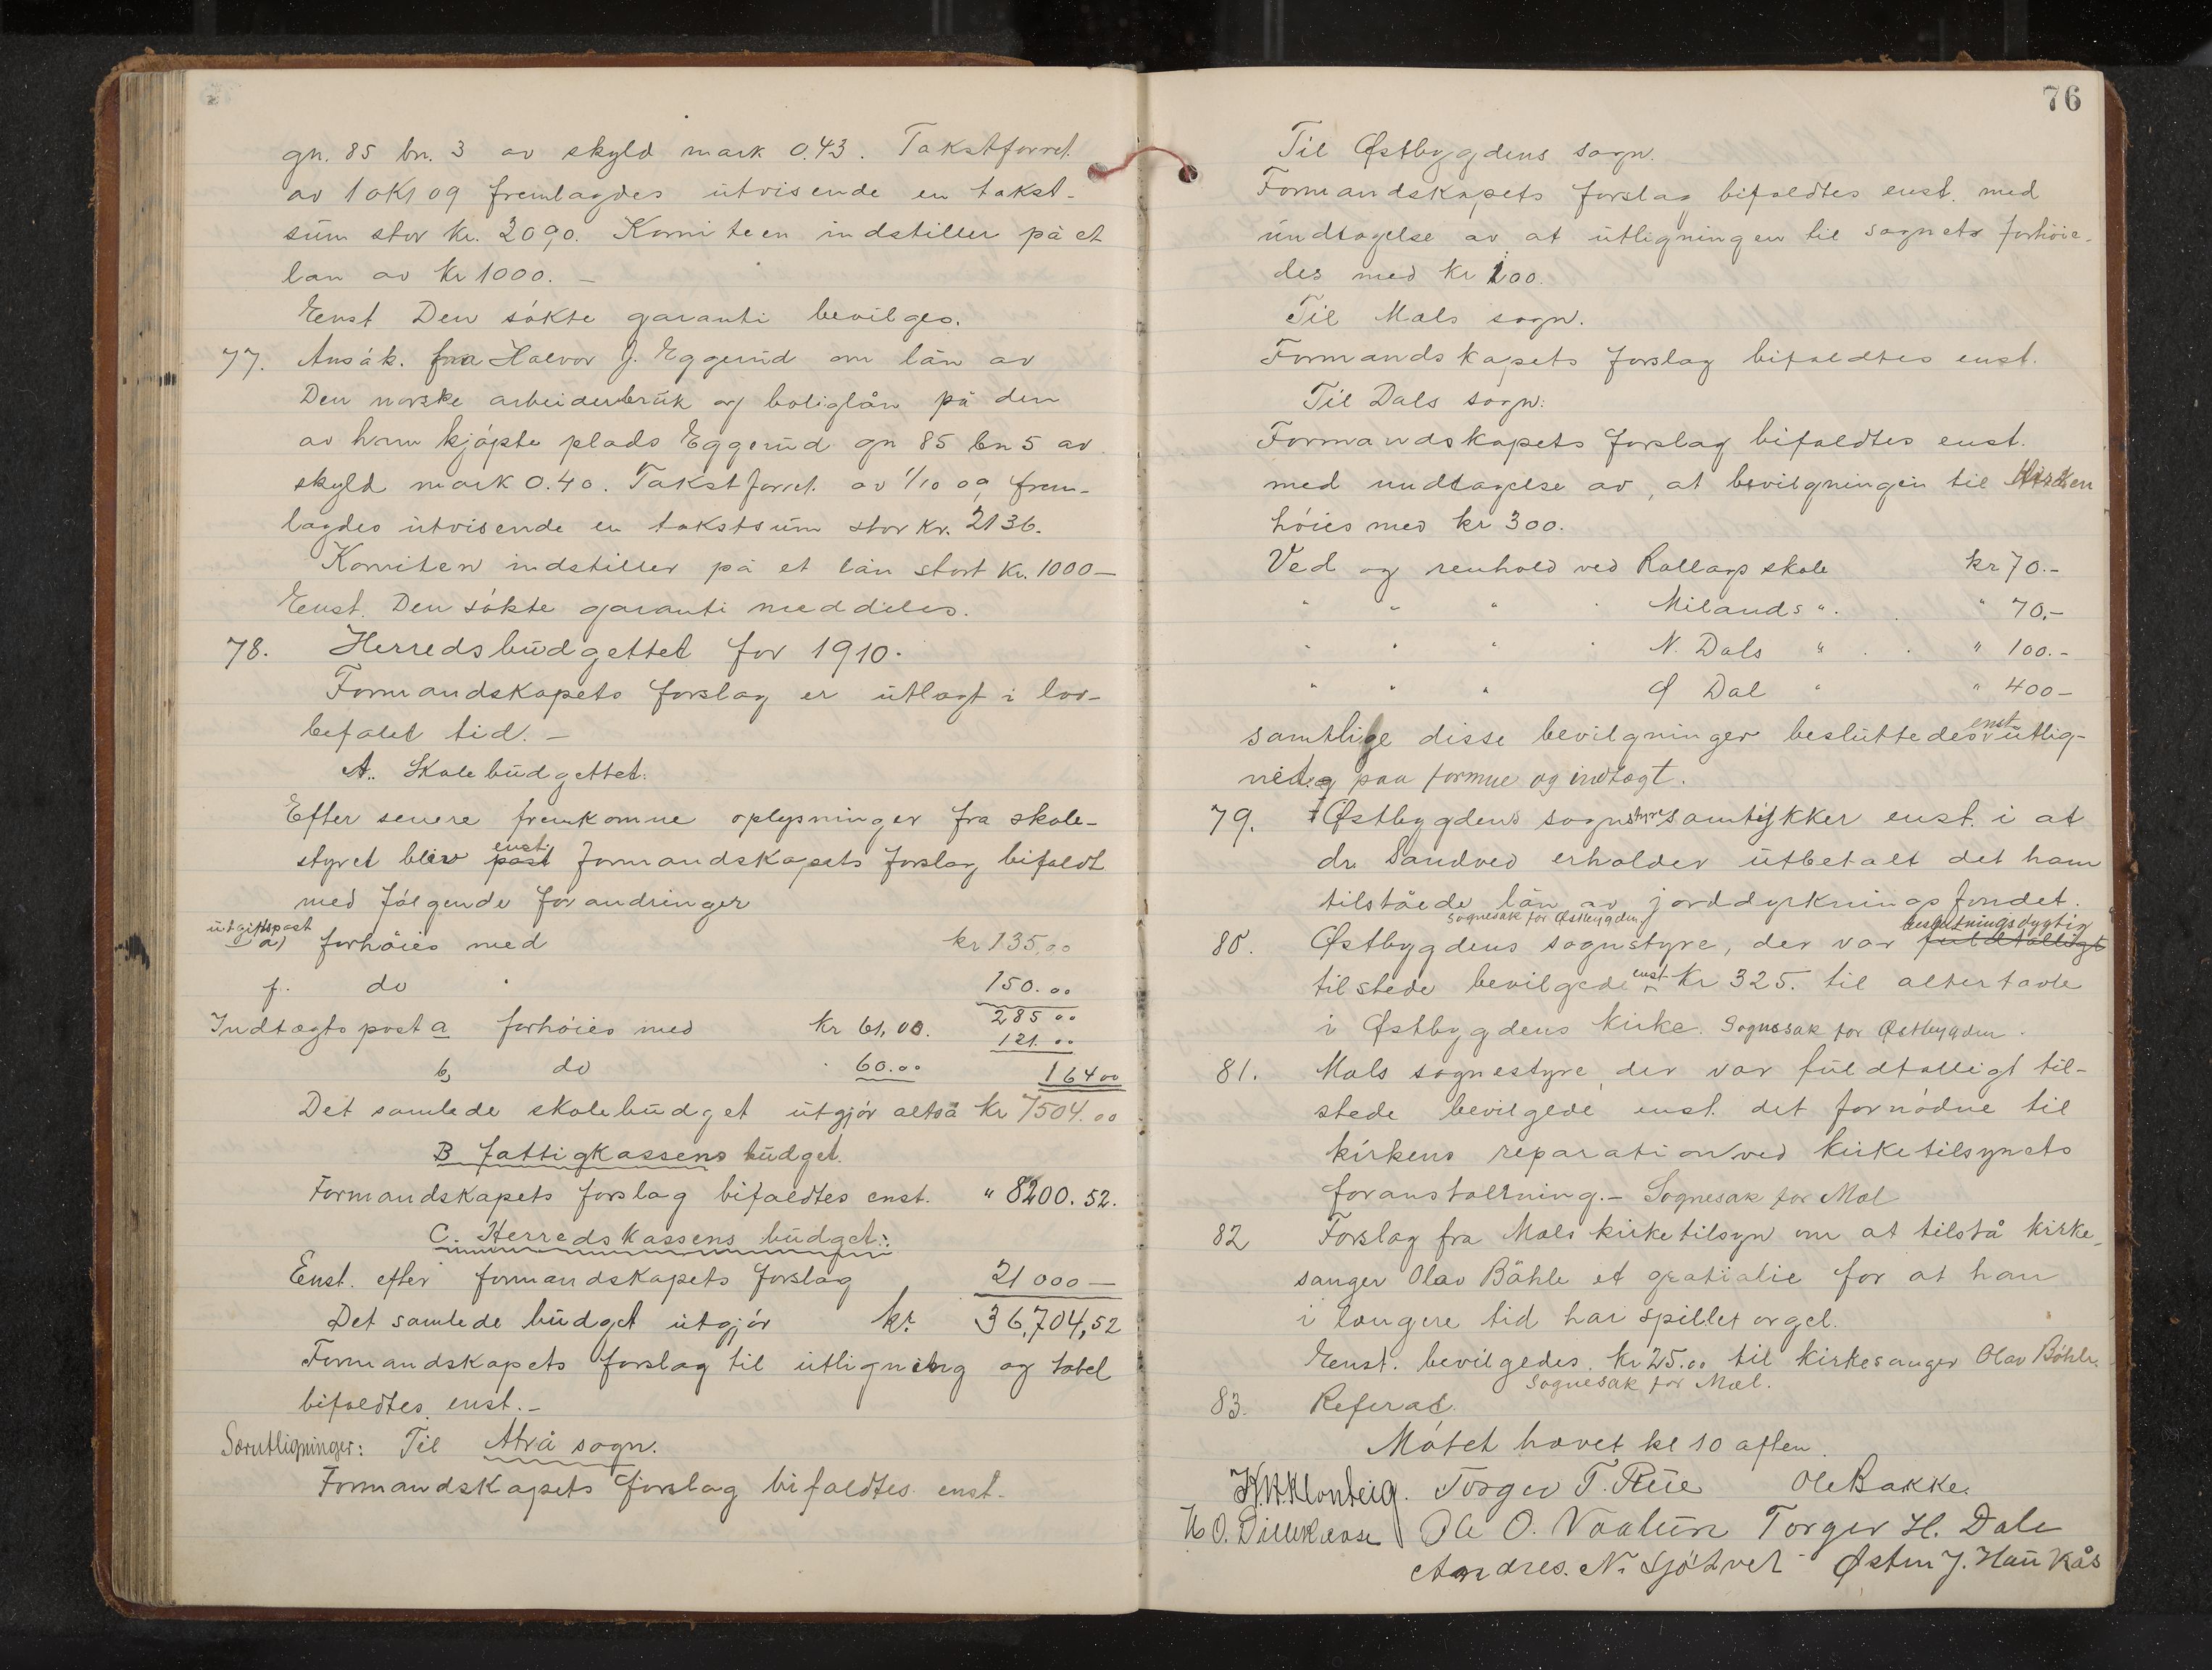 gn. 85 bn. 3 av skyld mark 0.43. Takstforret.
av 1 okt 09 fremlagdes utvisende en takst-
sum stor kr. 2090. Komiteen indstiller på et
lån av kr 1000.—
Enst Den søkte garanti bevilges.
77. Ansøk. fra Halvor J. Eggerud om lån av
Den norske arbeiderbruk og boliglån på den
av ham kjøpte plads Eggerud gn 85 bn 5 av
skyld mark 0.40. Takstforret. av 1/10 09 frem-
lagdes utvisende en takstsum stor kr. 2136.
Komiten indstiller på et lån stort kr. 1000—
Enst. Den søkte garanti meddeles.
78. Herredsbudgettet for 1910.
Formandskapets forslag er utlagt i lov-
befalet tid.—
A. Skolebudgettet:
Efter senere fremkomne oplysninger fra skole-
styret blev post enst. formandskapets forslag bifaldt
med følgende forandringer
utgiftspost
a) forhøies med kr 135,00
f. do 150.00
285 00
Indtægts post a forhøies med kr 61,00. 121.00
b, do 60.00 164 00
Det samlede skolebudget utgjør altså kr 7504.00
B Fattigkassens budget.
Formandskapets forslag bifaldtes enst. " 8200.52.
C. Herredskassens budget:
Enst. efter formandskapets forslag 21 000—
Det samlede budget utgjør kr. 36,704,52
Formandskapets forslag til utligning og tabel
bifaldtes enst.—
Særutligninger: Til Atrå sogn.
Formandskapets forslag bifaldtes enst.
76
Til Østbygdens sogn.
Formandskapets forslag bifaldtes enst. med
undtagelse av at utligningen til sognet forhøie-
des med kr 100.
Til Mæls sogn.
Formandskapets forslag bifaldtes enst.
Til Dals sogn:
Formandskapets forslag bifaldtes enst.
med undtagelse av, at bevilgningen til Kirken
høies med kr 300.
Ved og renhold ved Rollags skole kr 70.-
" " " " Milands " " 70,-
" " " " N. Dals " " 100.-
" " " Ø Dal " " 400-
samtlige disse bevilgninger besluttedes enst utlig-
net paa formue og indtægt.
79. Østbygdens sognstyre samtykker enst. i at
dr. Sandved erholder utbetalt det ham
tilståede lån av jorddyrkningsfondet.
Sognesak for Østbygden.
80. Østbygdens sognstyre, der var fuldtalligt beslutningsdygtig
tilstede bevilgede enst kr 325. til altertavle
i Østbygdens kirke. Sognesak for Østbygden.
81. Mæls sognestyre, der var fuldtalligt til-
stede bevilgede enst. det fornødne til
kirkens reparation ved kirketilsynets
foranstaltning.— Sognesak for Mæl
82 Forslag fra Mæls kirketilsyn om at tilstå kirke-
sanger Olav Bøhle et gratiale for at han
i længere tid har spillet orgel.
Enst. bevilgedes kr 25.00 til kirkesanger Olav Bøhle.
Sognesak for Mæl.
83. Referat.
Møtet hævet kl 10 aften.
K.H.Klonteig. Torgev T. Rue Ole Bakke.
H O. Dillekaase Ole O. Vaalun Torger H. Dale
Andres. N. Sjøtvet Østen J. Haukås